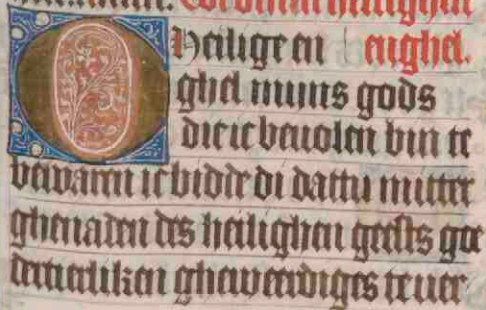 tot dinen heilighen
O Heilige en enghel.
ghel mijns gods
die ic beuolen bin te
bewaren ic bidde di dattu mitter
ghenaden des heilighen geests goe
dertierliken gheweerdiges te uer